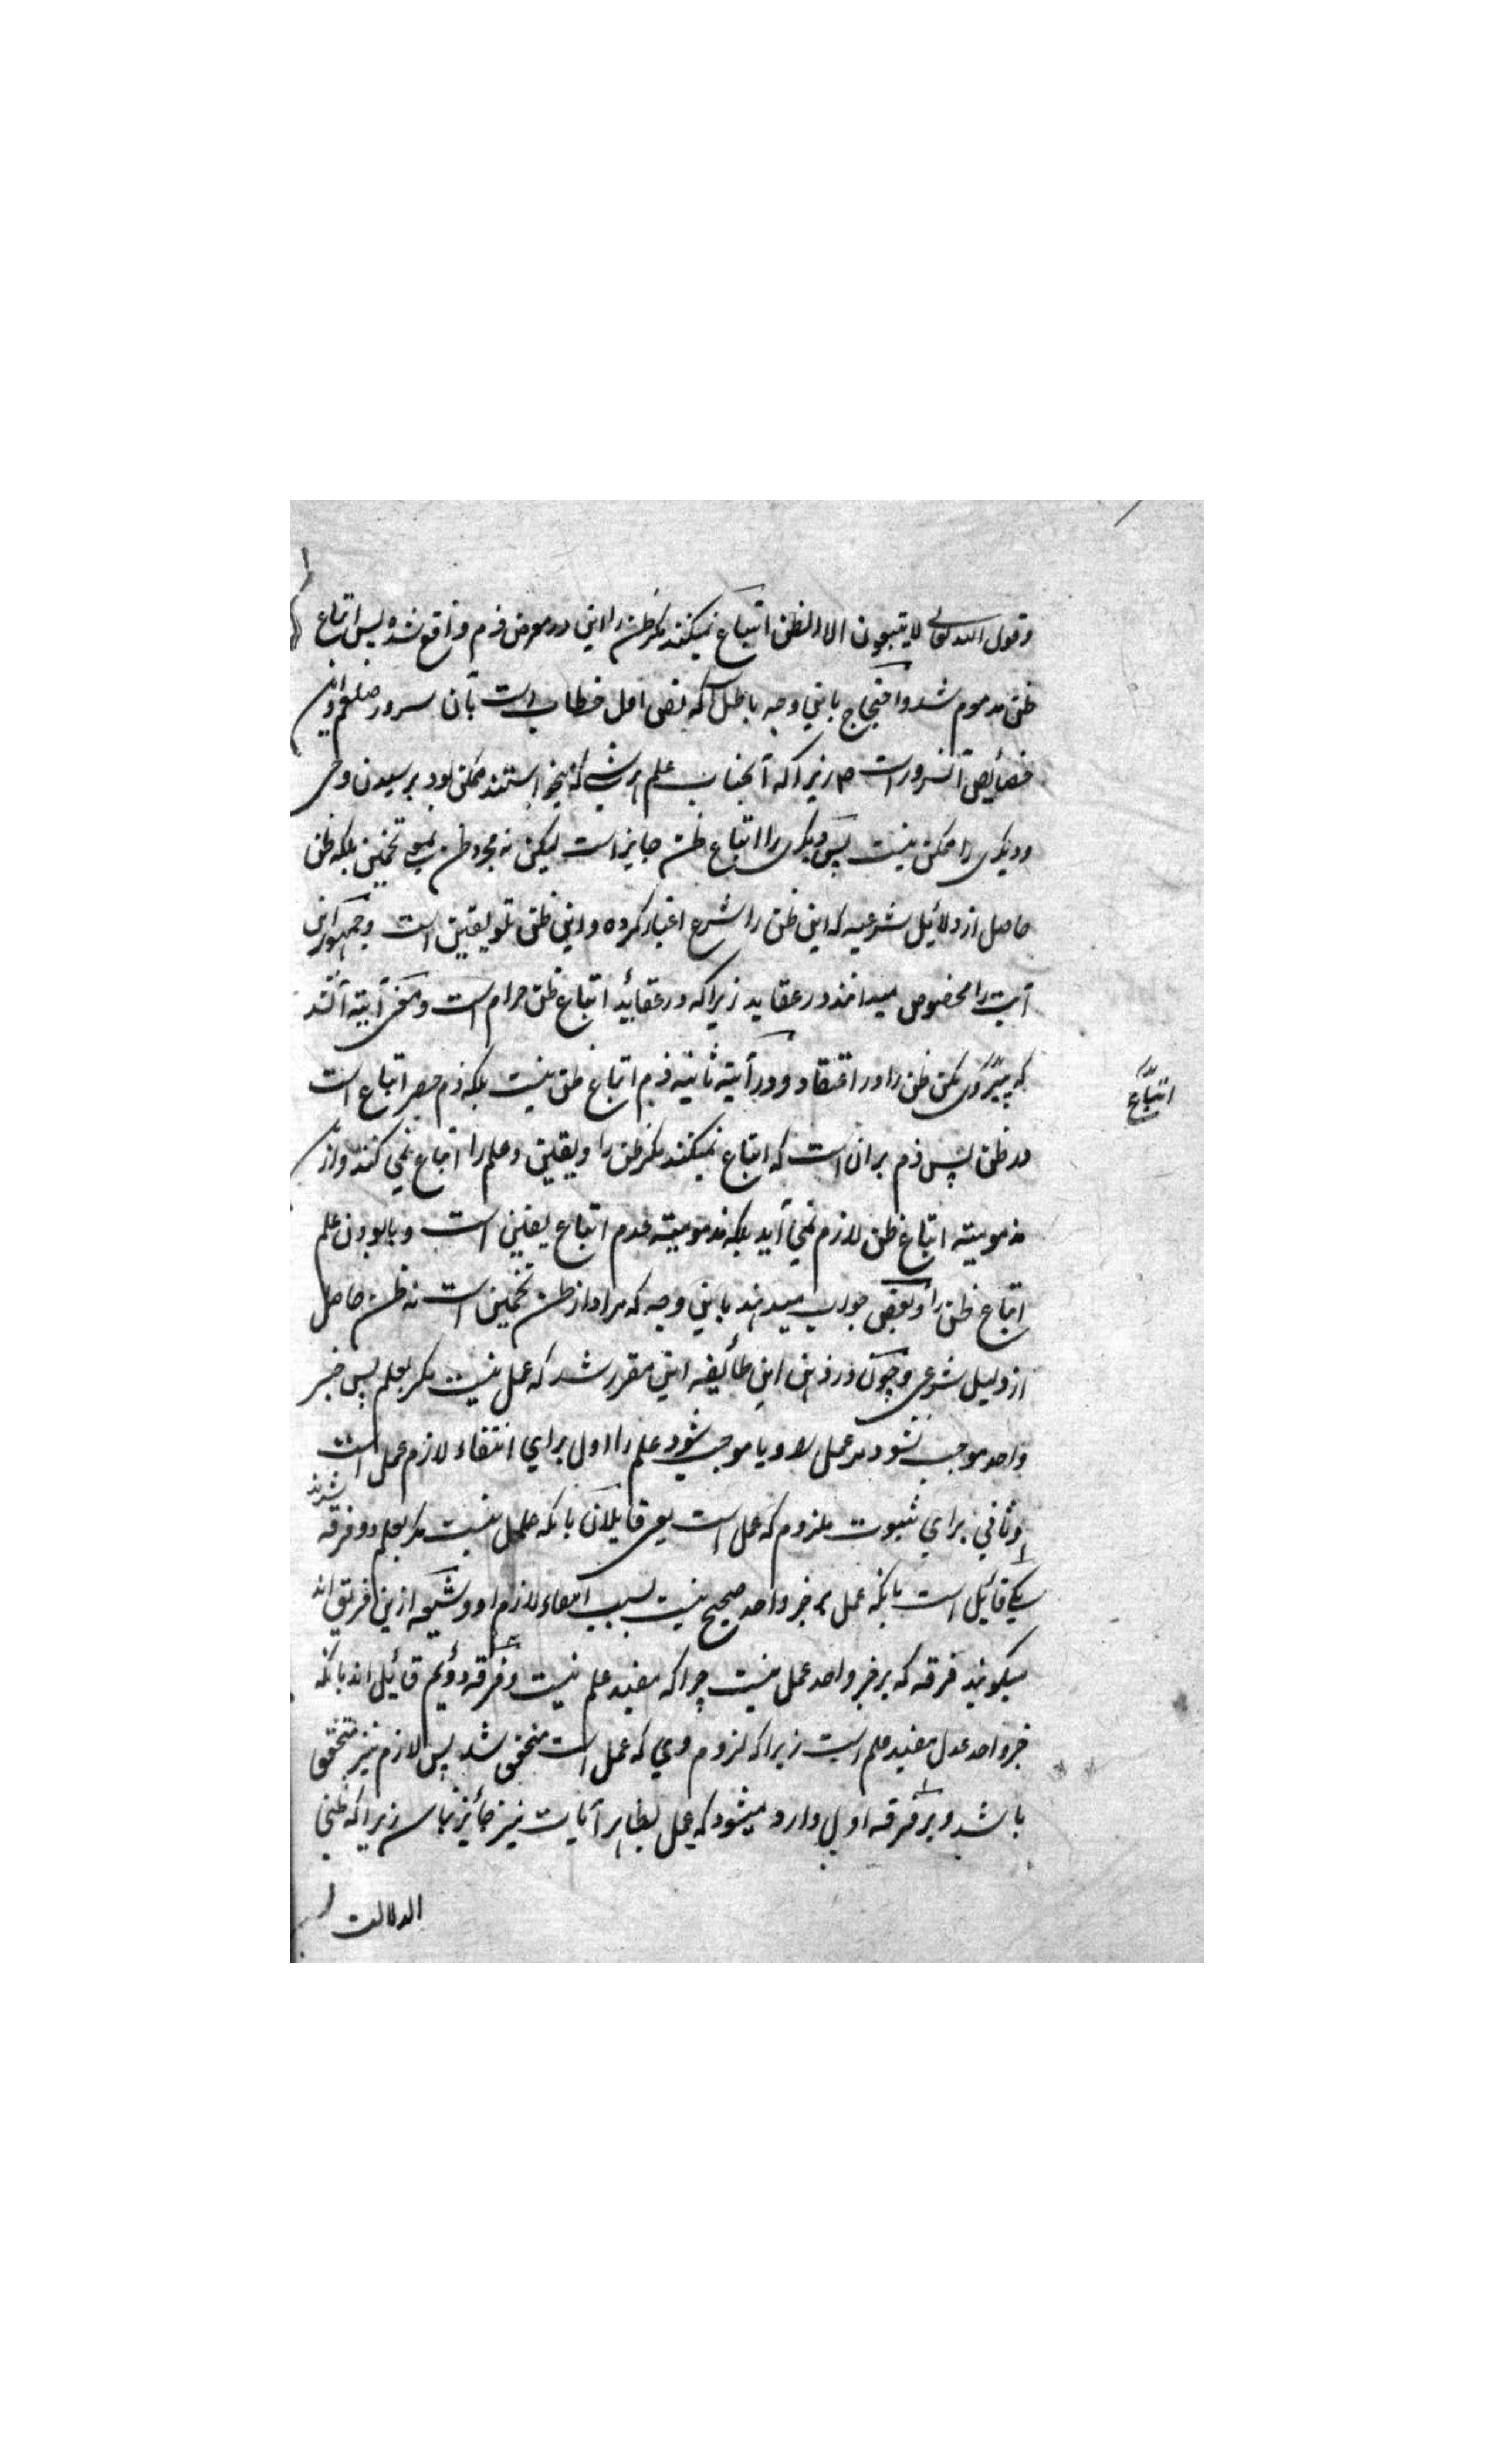 وقول الله تعالی لا یتبعون الا الظن اتباع نمیکنند مگر ظن را این در معرض ذم واقع شده پس اتباع
ظن مذموم شد و احتجاج باینوجه باطل که نص اول خطاب است بآن سرور صلعم و این
خصائص آنسرور است زیرا که آنجناب علم هر شی که میخواستند ممکن بود برسیدن وحی
و دیگری را ممکن نیست پس دیگری را اتباع ظن جایز است لیکن نه مجرد ظن تخمین بلکه ظن
حاصل از دلائیل شرعیه که این ظن را شرع اعتبار کرده و این ظن تلو یقین است و جمهور این
آیت را مخصوص میدانند در عقاید زیرا که در عقائید اتباع ظن حرام است و معنی آیته آنند
که پیروی مکن ظن را در اعتقاد و در آیته ثانیه ذم اتباع ظن نیست بلکه ذم حصر اتباع است
اتباع
در ظن پس ذم بر ان است که اتباع نمیکنند مگر ظن را و یقین و علم را اتباع نمی کنند و از
مذمومیته اتباع ظن لازم نمی آید بلکه مذمومیته عدم اتباع یقین است و با بودن علم
اتباع ظن را و بعضی جواب میدهند باین وجه که مراد از ظن تخمین است نه ظن حاصل
از دلیل شرعی و چون در ذهن این طائیفه این مقرر شد که عمل نیست مگر بعلم پس خبر
واحد موجب نشود مر عمل را و یا موجب شود علم را اول برای انتفاء لازم عمل است
و ثانی برای ثبوت ملزوم که عمل است یعنی قایلان بانکه عمل نیست مگر بعلم دو فرقه شدند
یکی قائیل است بانکه عمل بر خبر واحد صحیح نیست بسبب انتفاء لازم او و شیعه ازین فریق اند
میگویند فرقه که بر خبر واحد عمل نیست چرا که مفید علم نیست و فرقه دوئم قائیل اند بانکه
خبر واحد عدل مفید علم است زیرا که لزوم وی که عمل است متحقق شد پس لازم نیز متحقق
باشد و بر فرقه اولی وارد میشود که عمل بظاهر آیات نیز جائز نباشد زیرا که ظنی
الدلالت